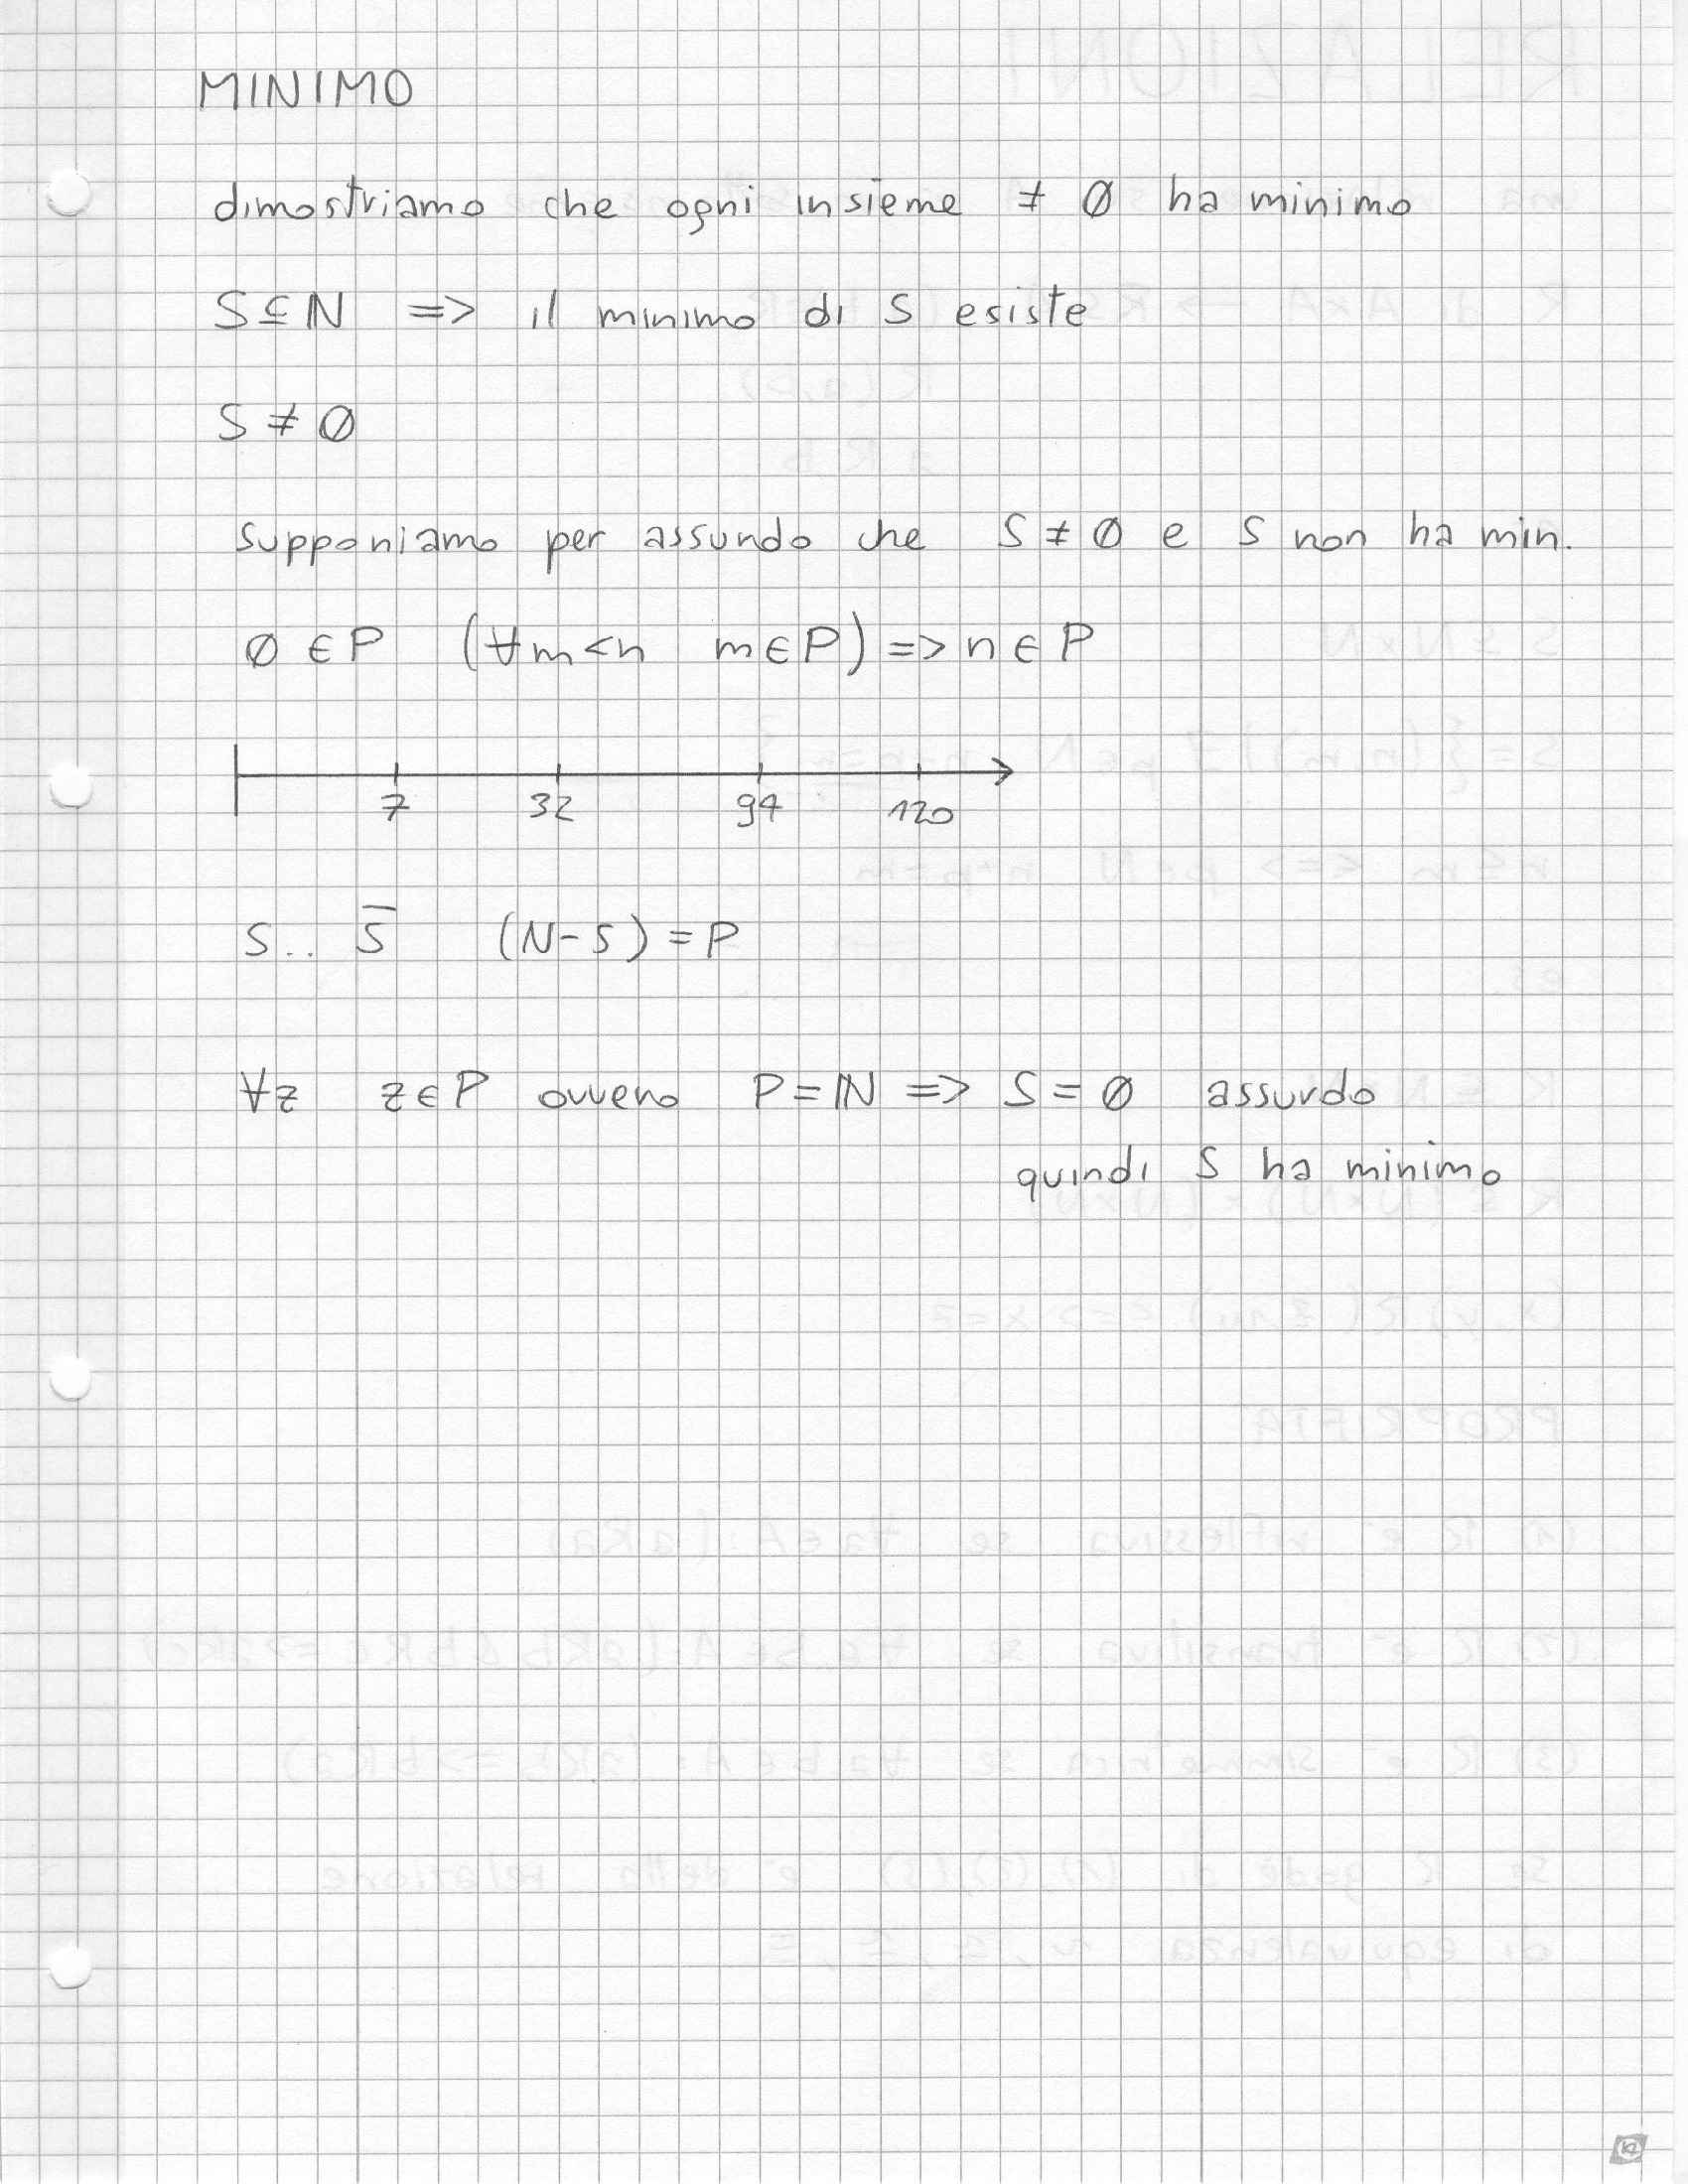 MINIMO
dimostriamo che ogni insieme ≠ Ø ha minimo
S⊆N => il minimo di S esiste
S ≠ Ø
supponiamo per assurdo che S ≠ Ø e S non ha min.
Ø ∈ P (∀m<n m∈P) => n ∈ P
7 32 94 120
S.. S̅ (N-S) = P
∀z z∈P ovvero P = ℕ => S = Ø assurdo
quindi S ha minimo